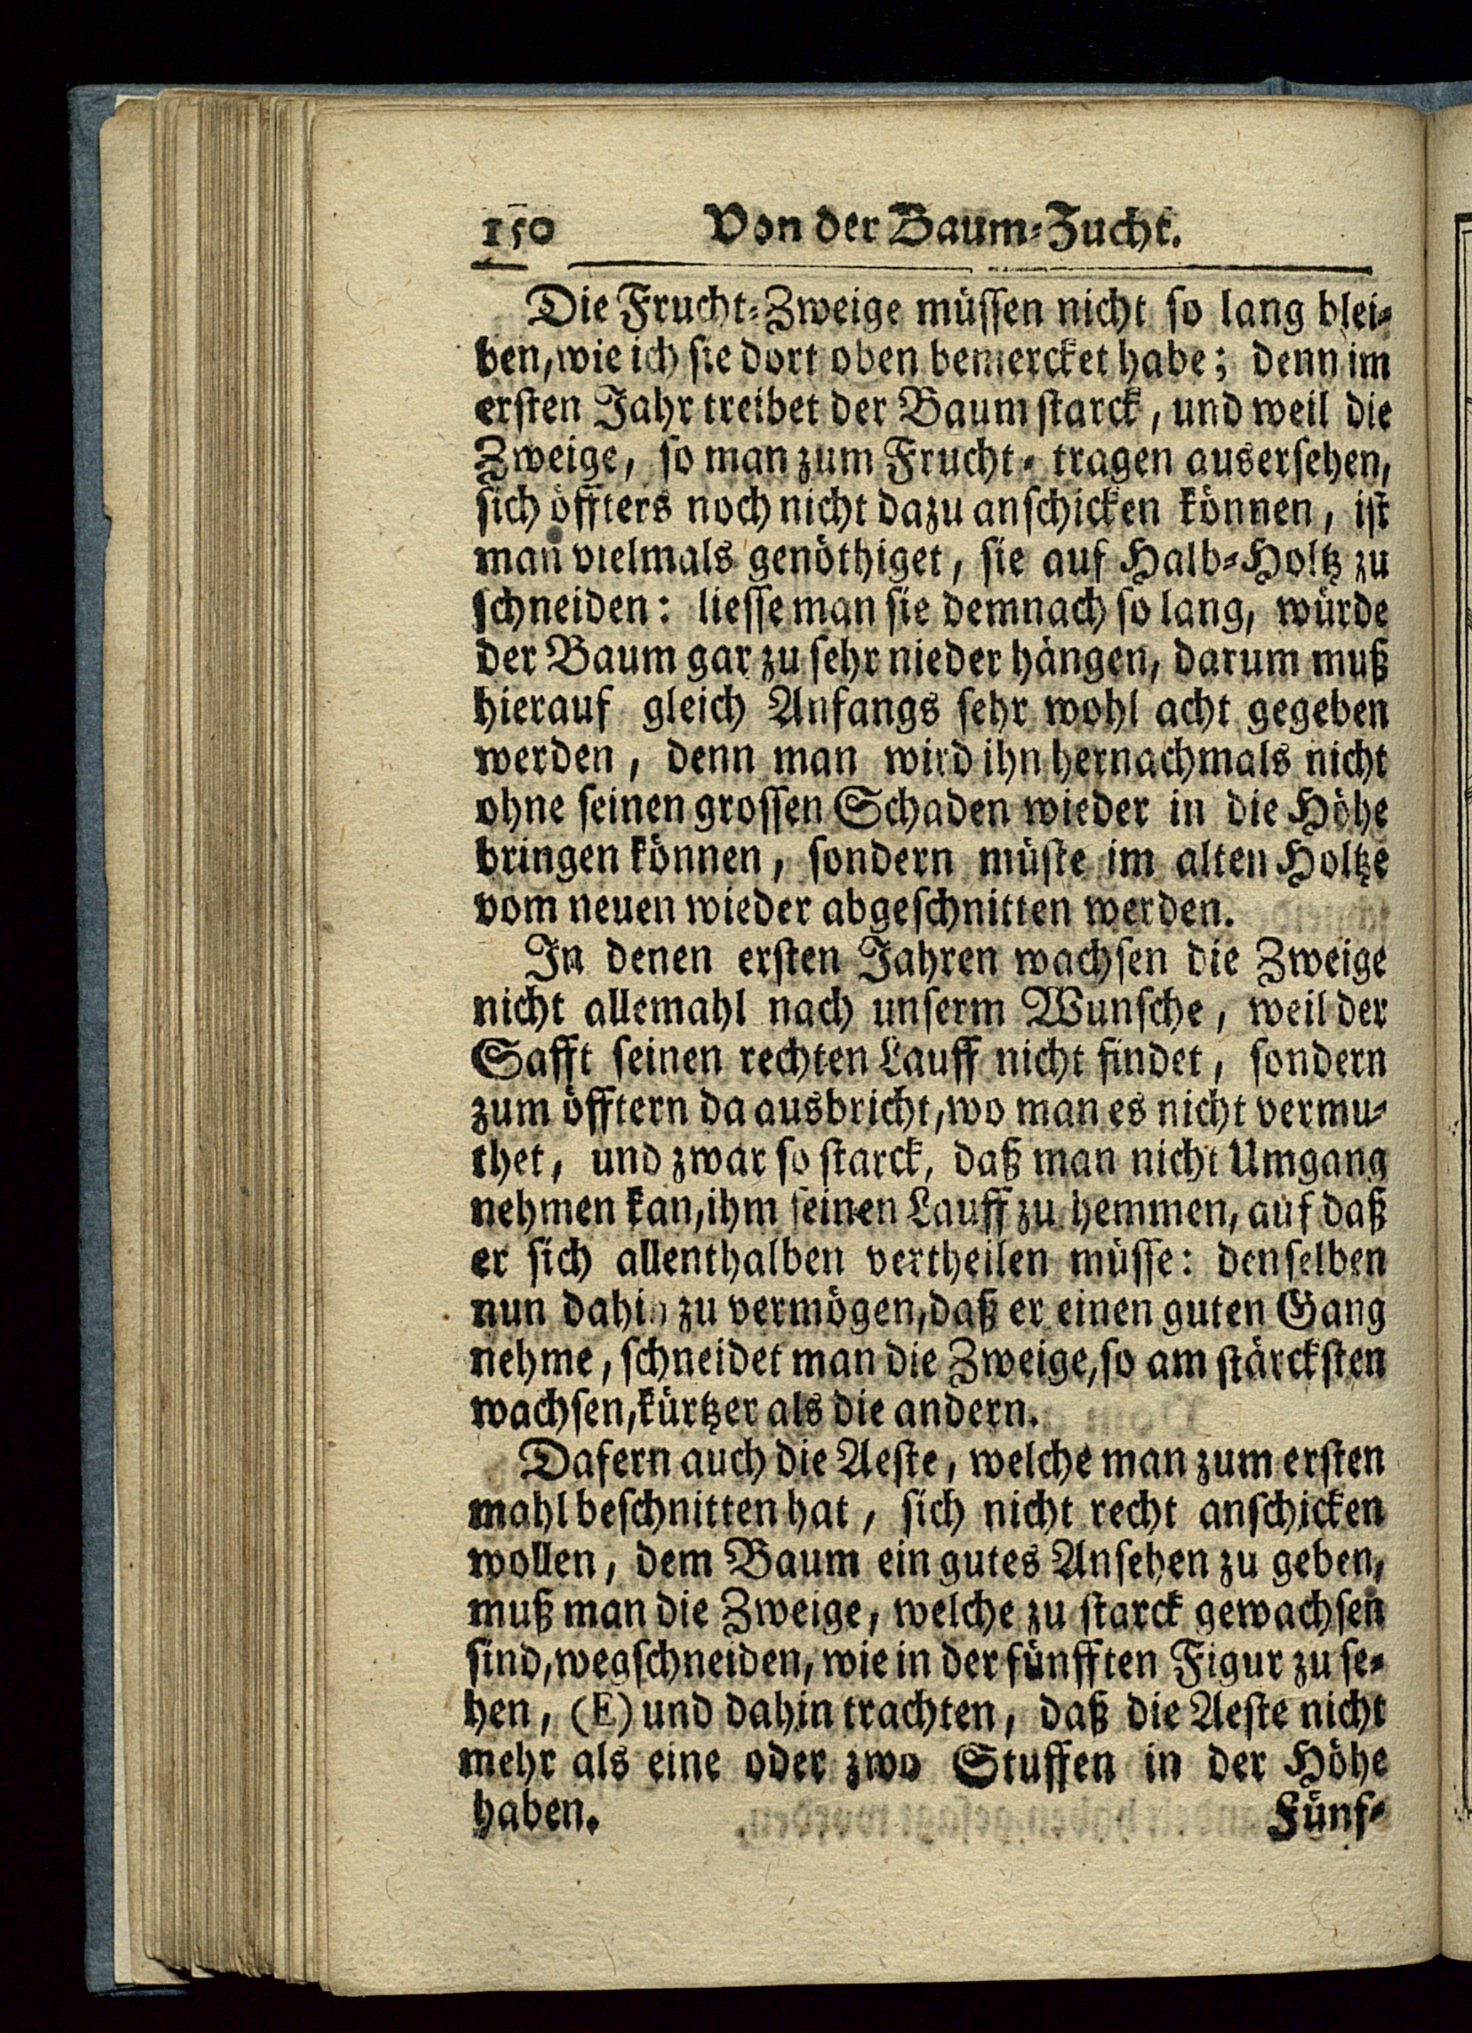 150 Von der Baum-Zucht.
Die Frucht-Zweige müssen nicht so lang blei-
ben, wie ich sie dort oben bemercket habe; denn im
ersten Jahr treibet der Baum starck, und weil die
Zweige, so man zum Frucht-tragen ausersehen,
sich öffters noch nicht dazu anschicken können, ist
man vielmals genöthiget, sie auf Halb-Holtz zu
schneiden: liesse man sie demnach so lang, würde
der Baum gar zu sehr nieder hängen, darum muß
hierauf gleich Anfangs sehr wohl acht gegeben
werden, denn man wird ihn hernachmals nicht
ohne seinen grossen Schaden wieder in die Höhe
bringen können, sondern müste im alten Holtze
vom neuen wieder abgeschnitten werden.
In denen ersten Jahren wachsen die Zweige
nicht allemahl nach unserm Wunsche, weil der
Safft seinen rechten Lauff nicht findet, sondern
zum öfftern da ausbricht, wo man es nicht vermu-
thet, und zwar so starck, daß man nicht Umgang
nehmen kan, ihm seinen Lauff zu hemmen, auf daß
er sich allenthalben vertheilen müsse: denselben
nun dahin zu vermögen, daß er einen guten Gang
nehme, schneidet man die Zweige, so am stärcksten
wachsen, kürtzer als die andern.
Dafern auch die Aeste, welche man zum ersten
mahl beschnitten hat, sich nicht recht anschicken
wollen, dem Baum ein gutes Ansehen zu geben,
muß man die Zweige, welche zu starck gewachsen
sind, wegschneiden, wie in der fünfften Figur zu se-
hen, (E) und dahin trachten, daß die Aeste nicht
mehr als eine oder zwo Stuffen in der Höhe
haben. Fünf-